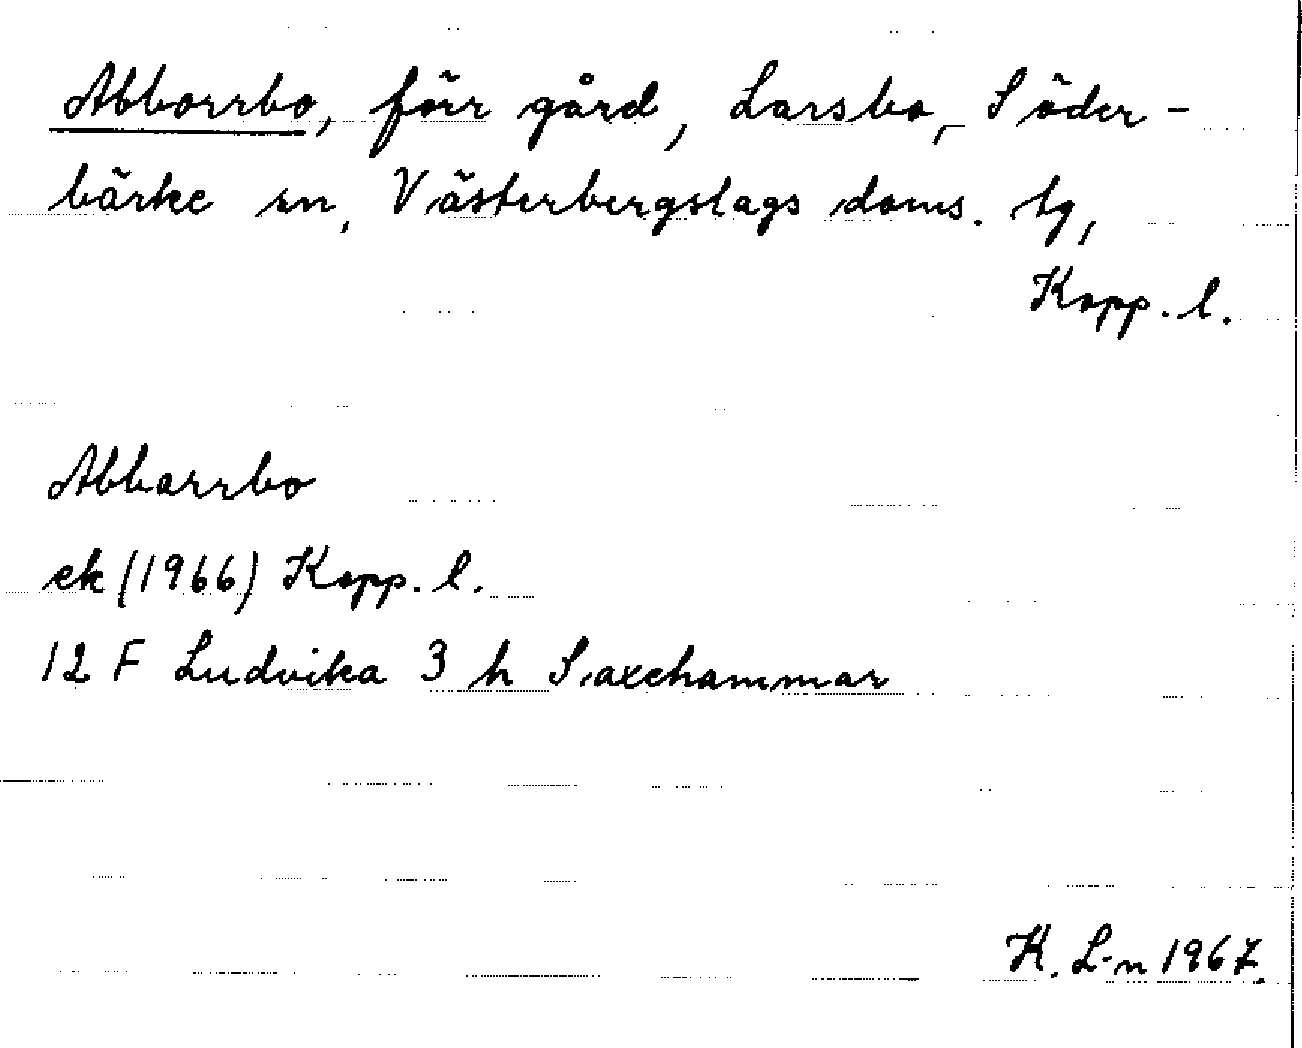 Abborrbo, förr gård, Larsbo, Söder-
bärke sn, Västerbergslags doms. tg,
Kopp. l.
Abborrbo
ek (1966) Kopp. l.
12 F Ludvika 3 h Saxehammar
K. L-n 1967.